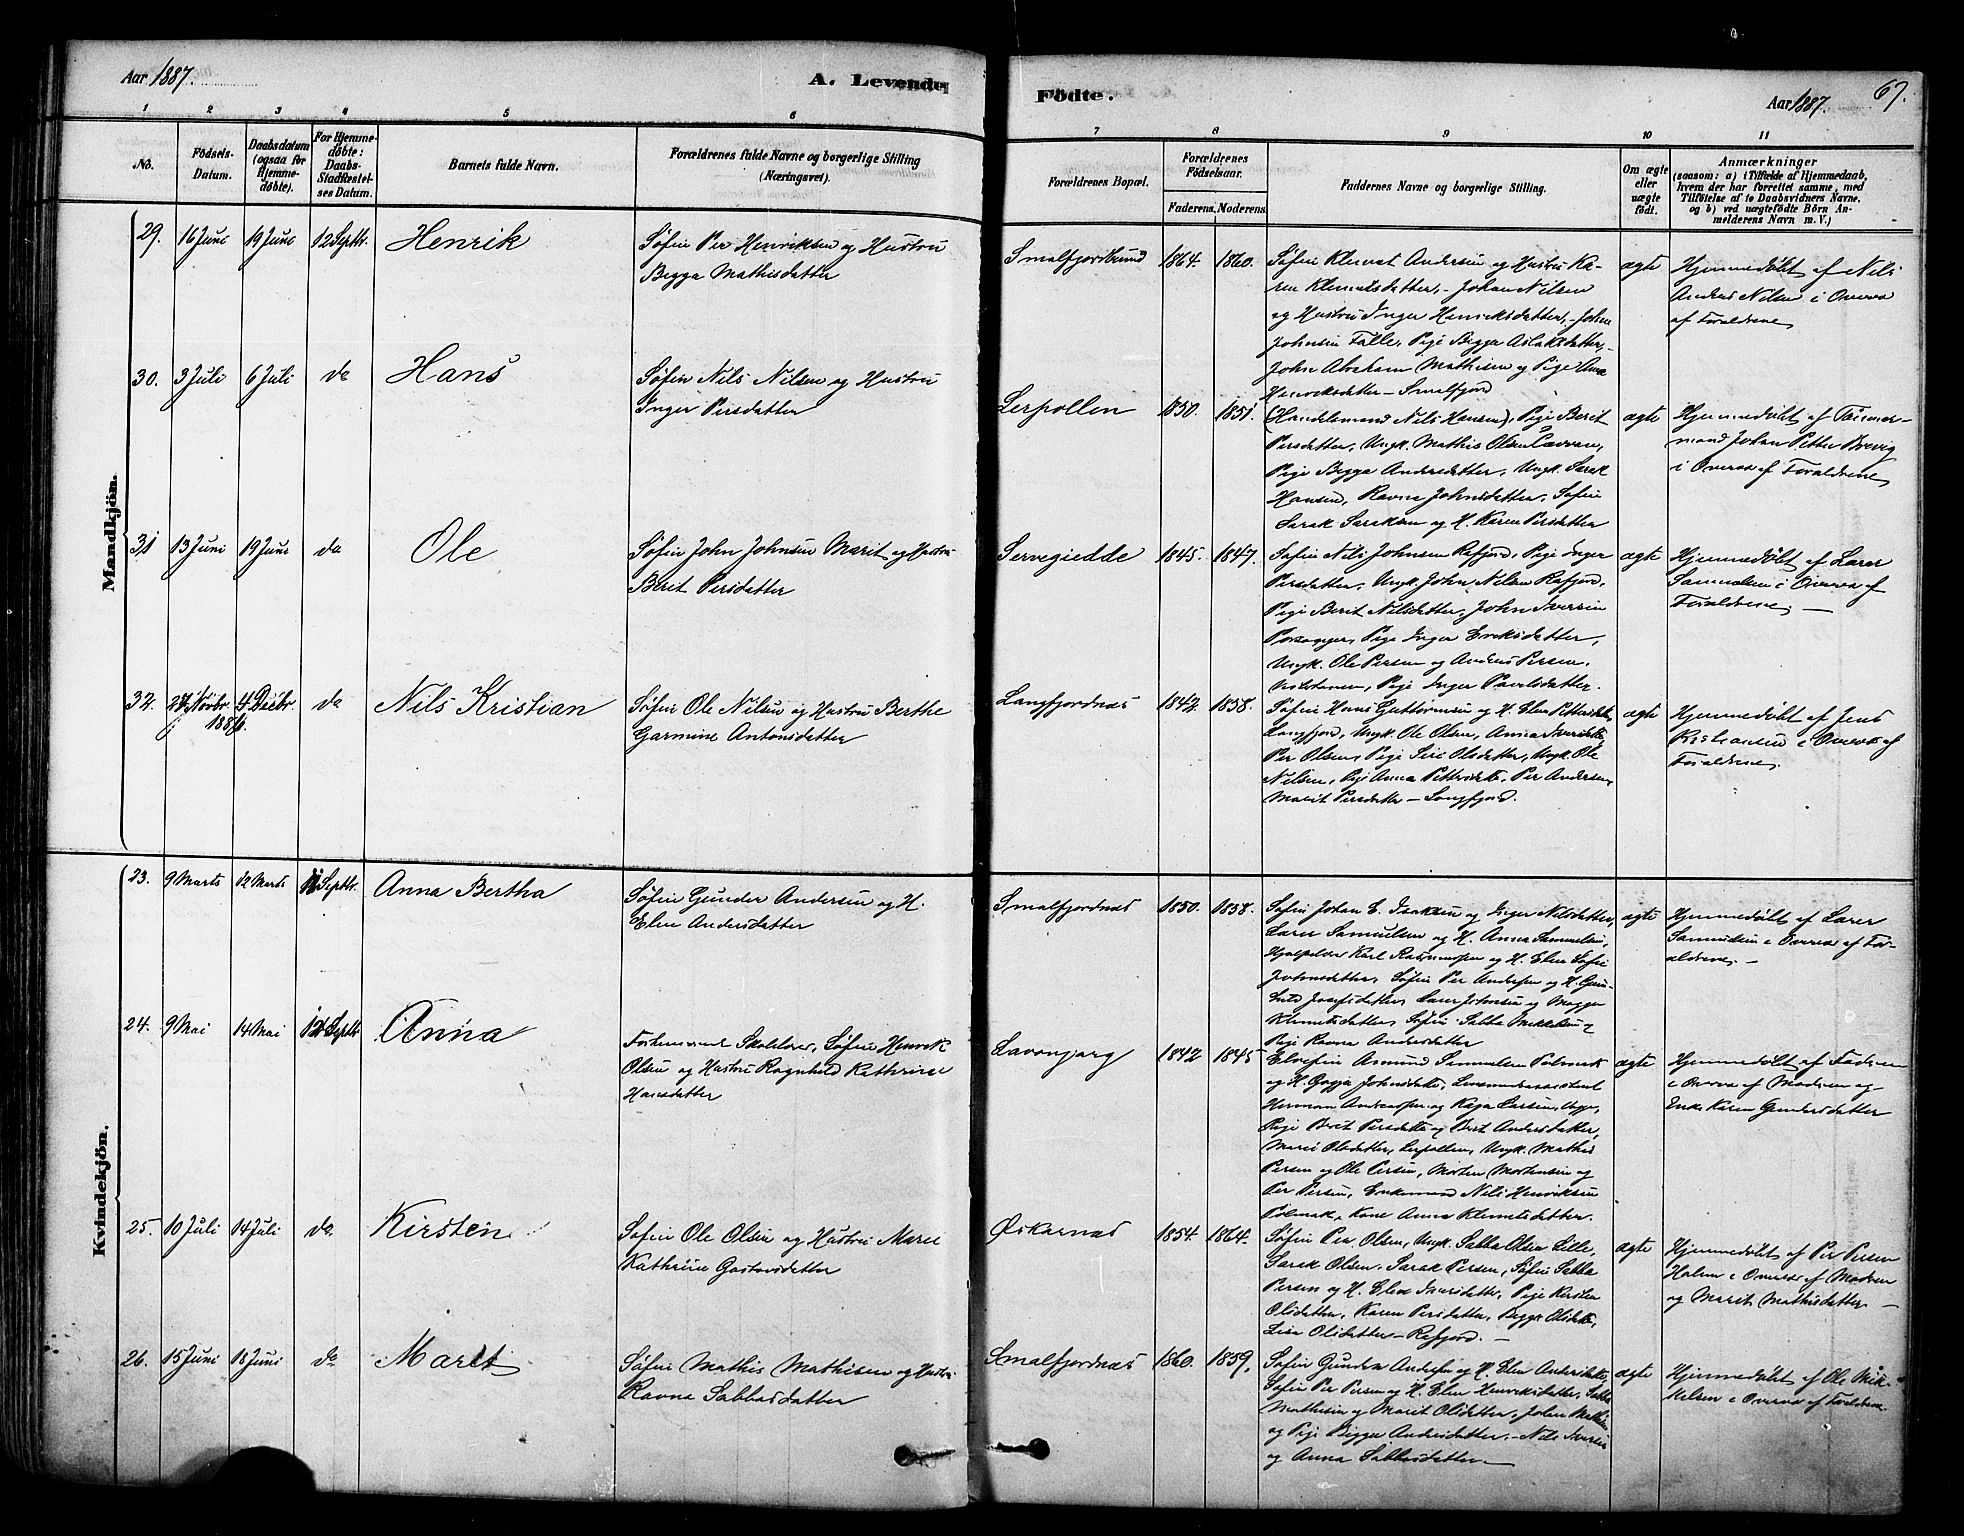 Aar 1887.
A. Levende
Födte.
Aar 1887.
67.
1 2 3 4 5 6 7 8 9 10 11
No.
Födsels-
Datum.
Daabsdatum
(ogsaa for
Hjemme-
döbte).
For Hjemme-
döbte:
Daabs-
Stadfæstel-
ses Datum.
Barnets fulde Navn.
Forældrenes fulde Navne og borgerlige Stilling
(Næringsvei).
Forældrenes Bopæl.
Forældrenes
Födselsaar.
Faderens. Moderens.
Faddernes Navne og borgerlige Stilling.
Om ægte
eller
uægte
födt.
Anmærkninger
(saasom: a) i Tilfælde af Hjemmedaab,
hvem der har forrettet samme, med
Tilföielse af to Daabsvidners Navne,
og b) ved uægtefödte Börn An-
melderens Navn m. V.)
Mandkjön.
29. 16 Juni 19 Juni 12 Septbr. Henrik
Søfin Per Henriksen og Hustru
Bigga Mathisdatter
Smalfjordbund 1864. 1860.
Søfin Klemet Andersen og Hustru Ka-
ren Klemetsdatter, - Johan Nilsen
og Hustru Inger Henriksdatter, - John
Johnsen Falle, Pige Bigga Aslaksdatter,
John Abraham Mathisen og Pige Anna
Henriksdatter - Smalfjord
ægte
Hjemmedøbt af Nils
Andreas Nilsen i Overvær
af Forældrene
30. 3 Juli 6 Juli do Hans
Søfin Nils Nilsen og Hustru
Inger Persdatter
Lerpollen 1850. 1851.
(Handelsmand Nils Hansen), Pige Berit
Persdatter, Ungk. Mathis Olsen
Pige Bigga Andersdatter, Ungk. Sarak
Hansen, Ravna Johnsdatter, Søfin
Sarak Sareksen og H. Karen Persdatter
ægte
Hjemmedøbt af Tømmer-
mand Johan Petter Brevig
i Overvær af Forældrene
31 13 Juni 19 Juni do Ole
Søfin John Johnsen Marit og Hustru
Berit Persdatter
Servegiedde 1845. 1847.
Søfin Nils Johnsen Refjord, Pige Inger
Persdatter, Ungk. John Nilsen Refjord,
Pige Berit Nilsdatter, John Iversen
Pige Inger Eriksdatter,
Ungk. Ole Persen og Anders Persen,
Pige Inger Paulsdatter.
ægte
Hjemmedøbt af Lærer
Samuelsen i Overvær af
Forældrene. -
32. 27 Novbr. 1886. 4 Decbr. do Nils Kristian
Søfin Ole Nilsen og Hustru Berthe
Garmine Antonsdatter
Langfjordnæs 1842. 1858.
Søfin Hans Guttormsen og H. Elen Pettersdatter
Langfjord, Ungk. Ole Olsen, Anna Iversdatter
Per Olsen, Pige Siri Olsdatter, Ungk. Ole
Nilsen, Pige Anna Pettersdtr, Per Andersen,
Marit Persdatter - Langfjord.
ægte
Hjemmedøbt af Jens
Kristiansen i Overvær af
Forældrene.
Kvindekjön.
23. 9 Marts 12 Marts Septbr. Anna Bertha
Søfin Gunder Andersen og H.
Elen Andersdatter
Smalfjordnæs 1850. 1858.
Søfin Johan E. Isaksen og Inger Nilsdatter,
Lærer Samuelsen og H. Anna Samuelsen,
Hjælpelærer Karl Rasmussen og H. Elen Sofie
Johnsdatter, Søfin Per Andersen og H. Gun-
hild Josefsdatter, Lærer Johnsen og Magga
Klemetsdatter, Søfin Sabba Mikkelsen og
Pige Ravna Andersdatter
ægte
Hjemmedøbt af Lærer
Samuelsen i Overvær af For-
ældrene. -
24. 9 Mai 14 Mai 12 Septbr Anna
Forhenværende Skolelærer, Søfin Henrik
Olsen og Hustru Ragnhild Kathrine
Hansdatter
Lavonjarg 1842 1845
Elvefin Asmund Samuelsen Polmak
og H. Gagga Johnsdtr, Lensmandsassistent
Herman Andreassen og Kaja Larsen,
Pige Berit Persdatter og Berit Andersdatter,
Marie Olsdatter, Lerpollen, Ungk. Mathis
Persen og Ole Persen, Morten Mortensen og
Per Persen, Enkemand Nils Henriksen
Polmak, Kone Anna Klemetsdatter.
ægte
Hjemmedøbt af Faderen
i Overvær af Moderen og
Enke Karen Gundersdatter
25. 10 Juli 14 Juli do. Kirsten
Søfin Ole Olsen og Hustru Marie
Kathrine Gustavsdatter
Øskarnæs 1854. 1864.
Søfin Per Olsen, Ungk. Sabba Olsen Lille,
Sarak Olsen, Sarak Persen, Søfin Sabba
Persen og H. Elen Iversdatter, Pige Kirsten
Olsdatter, Karen Persdatter, Bigga Olsdatter,
Lisa Olsdatter - Refjord. -
ægte
Hjemmedøbt af Per Persen
Holm i Overvær af Moderen
og Marit Mathisdatter -
26. 15 Juni 18 Juni do Marit
Søfin Mathis Mathisen og Hustru
Ravna Sabbasdatter
Smalfjordnæs 1860. 1859.
Søfin Gunder Andersen og H. Elen Andersdatter,
Søfin Per Persen og H. Elen Henriksdatter, Sabba
Mathisen og Marit Olsdatter, John Mathisen
og Pige Bigga Andersdatter. - Nils Iversen
og Anna Sabbasdatter -
ægte
Hjemmedøbt af Ole Mik-
kelsen i Overvær af Forældrene.